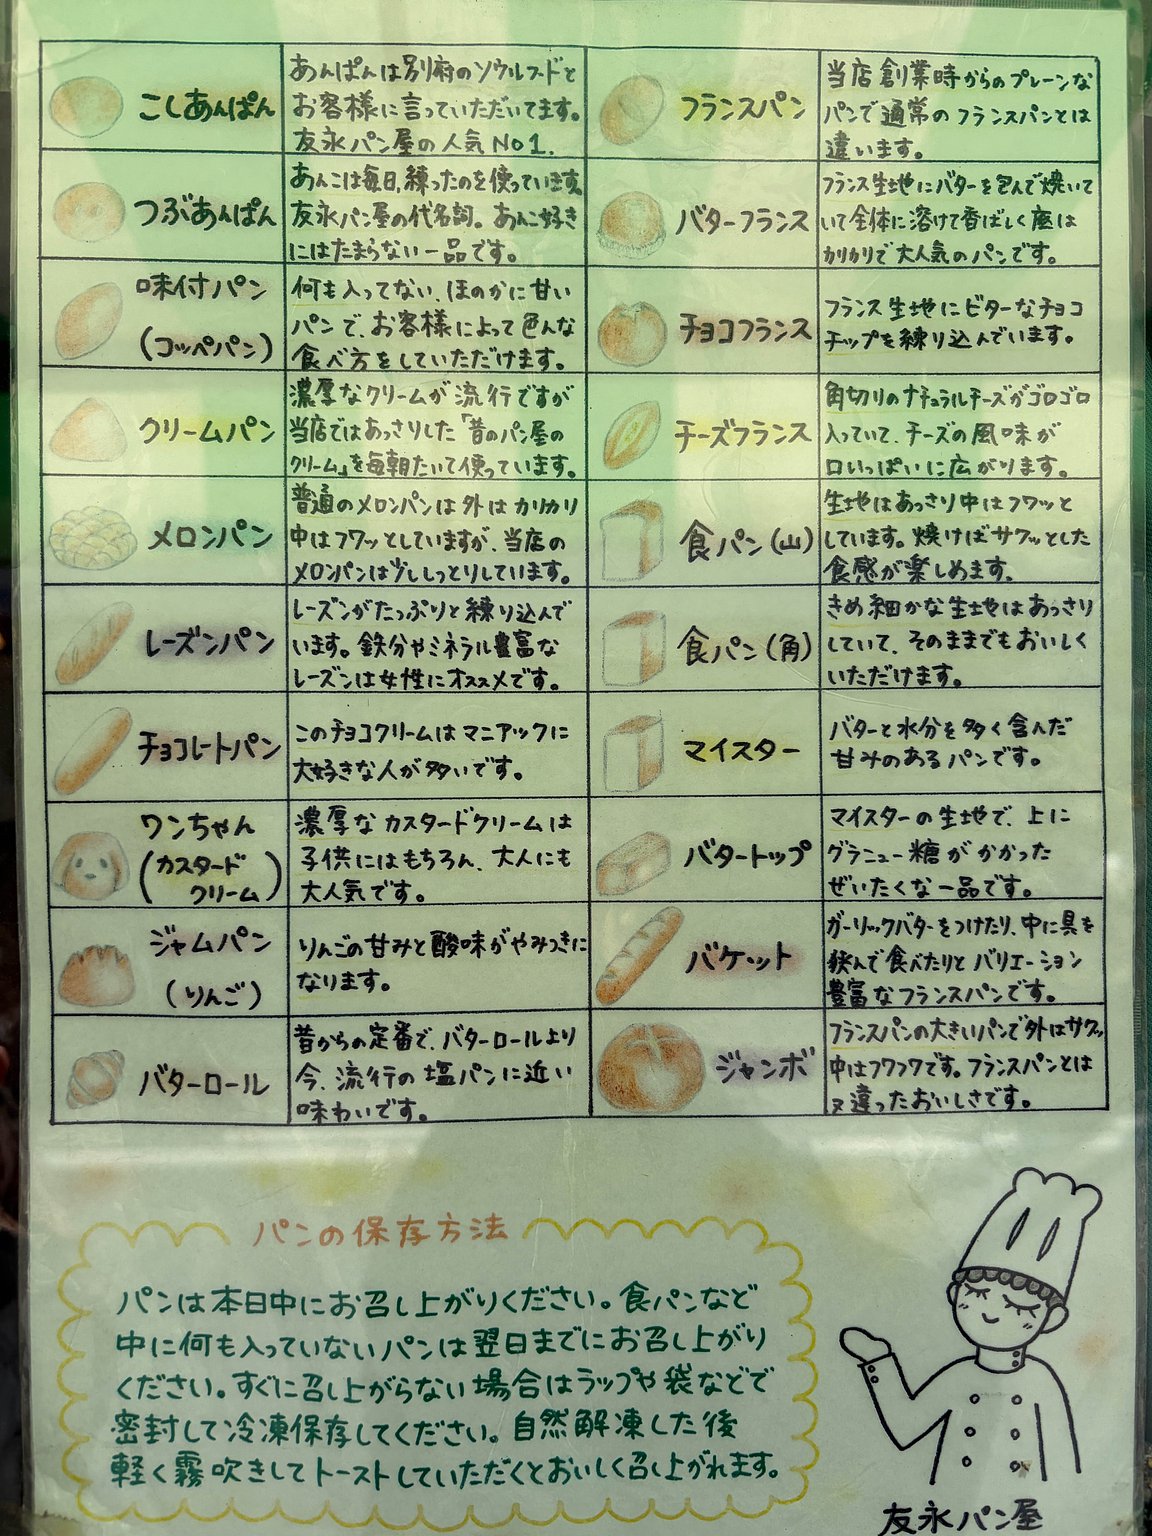 こしあんぱん
あんぱんは別府のソウルフードと
お客様に言っていただいてます。
友永パン屋の人気No1.
つぶあんぱん
あんこは毎日、練ったのを使っています。
友永パン屋の代名詞。あんこ好き
にはたまらない一品です。
味付パン
(コッペパン)
何も入ってない、ほのかに甘い
パンで、お客様によって色んな
食べ方をしていただけます。
クリームパン
濃厚なクリームが流行ですが
当店ではあっさりした「昔のパン屋の
クリーム」を毎朝たいて使っています。
メロンパン
普通のメロンパンは外はカリカリ
中はフワッとしていますが、当店の
メロンパンは少ししっとりしています。
レーズンパン
レーズンがたっぷりと練り込んで
います。鉄分やミネラル豊富な
レーズンは女性にオススメです。
チョコレートパン
このチョコクリームはマニアックに
大好きな人が多いです。
ワンちゃん
(カスタード
クリーム)
濃厚なカスタードクリームは
子供にはもちろん、大人にも
大人気です。
ジャムパン
(りんご)
りんごの甘みと酸味がやみつきに
なります。
バターロール
昔からの定番で、バターロールより
今、流行の塩パンに近い
味わいです。
フランスパン
当店創業時からのプレーンな
パンで通常のフランスパンとは
違います。
バターフランス
フランス生地にバターを包んで焼いて
いて全体に溶けて香ばしく底は
カリカリで大人気のパンです。
チョコフランス
フランス生地にビターなチョコ
チップを練り込んでいます。
チーズフランス
角切りのナチュラルチーズがゴロゴロ
入っていて、チーズの風味が
口いっぱいに広がります。
食パン(山)
生地はあっさり中はフワッと
しています。焼けばサクッとした
食感が楽しめます。
食パン(角)
きめ細かな生地はあっさり
していて、そのままでもおいしく
いただけます。
マイスター
バターと水分を多く含んだ
甘みのあるパンです。
バタートップ
マイスターの生地で、上に
グラニュー糖がかかった
ぜいたくな一品です。
バケット
ガーリックバターをつけたり、中に具を
挟んで食べたりとバリエーション
豊富なフランスパンです。
ジャンボ
フランスパンの大きいパンで外はサクッ
中はフワフワです。フランスパンとは
又違ったおいしさです。
パンの保存方法
パンは本日中にお召し上がりください。食パンなど
中に何も入っていないパンは翌日までにお召し上がり
ください。すぐに召し上がらない場合はラップや袋などで
密封して冷凍保存してください。自然解凍した後
軽く霧吹きしてトーストしていただくとおいしく召し上がれます。
友永パン屋